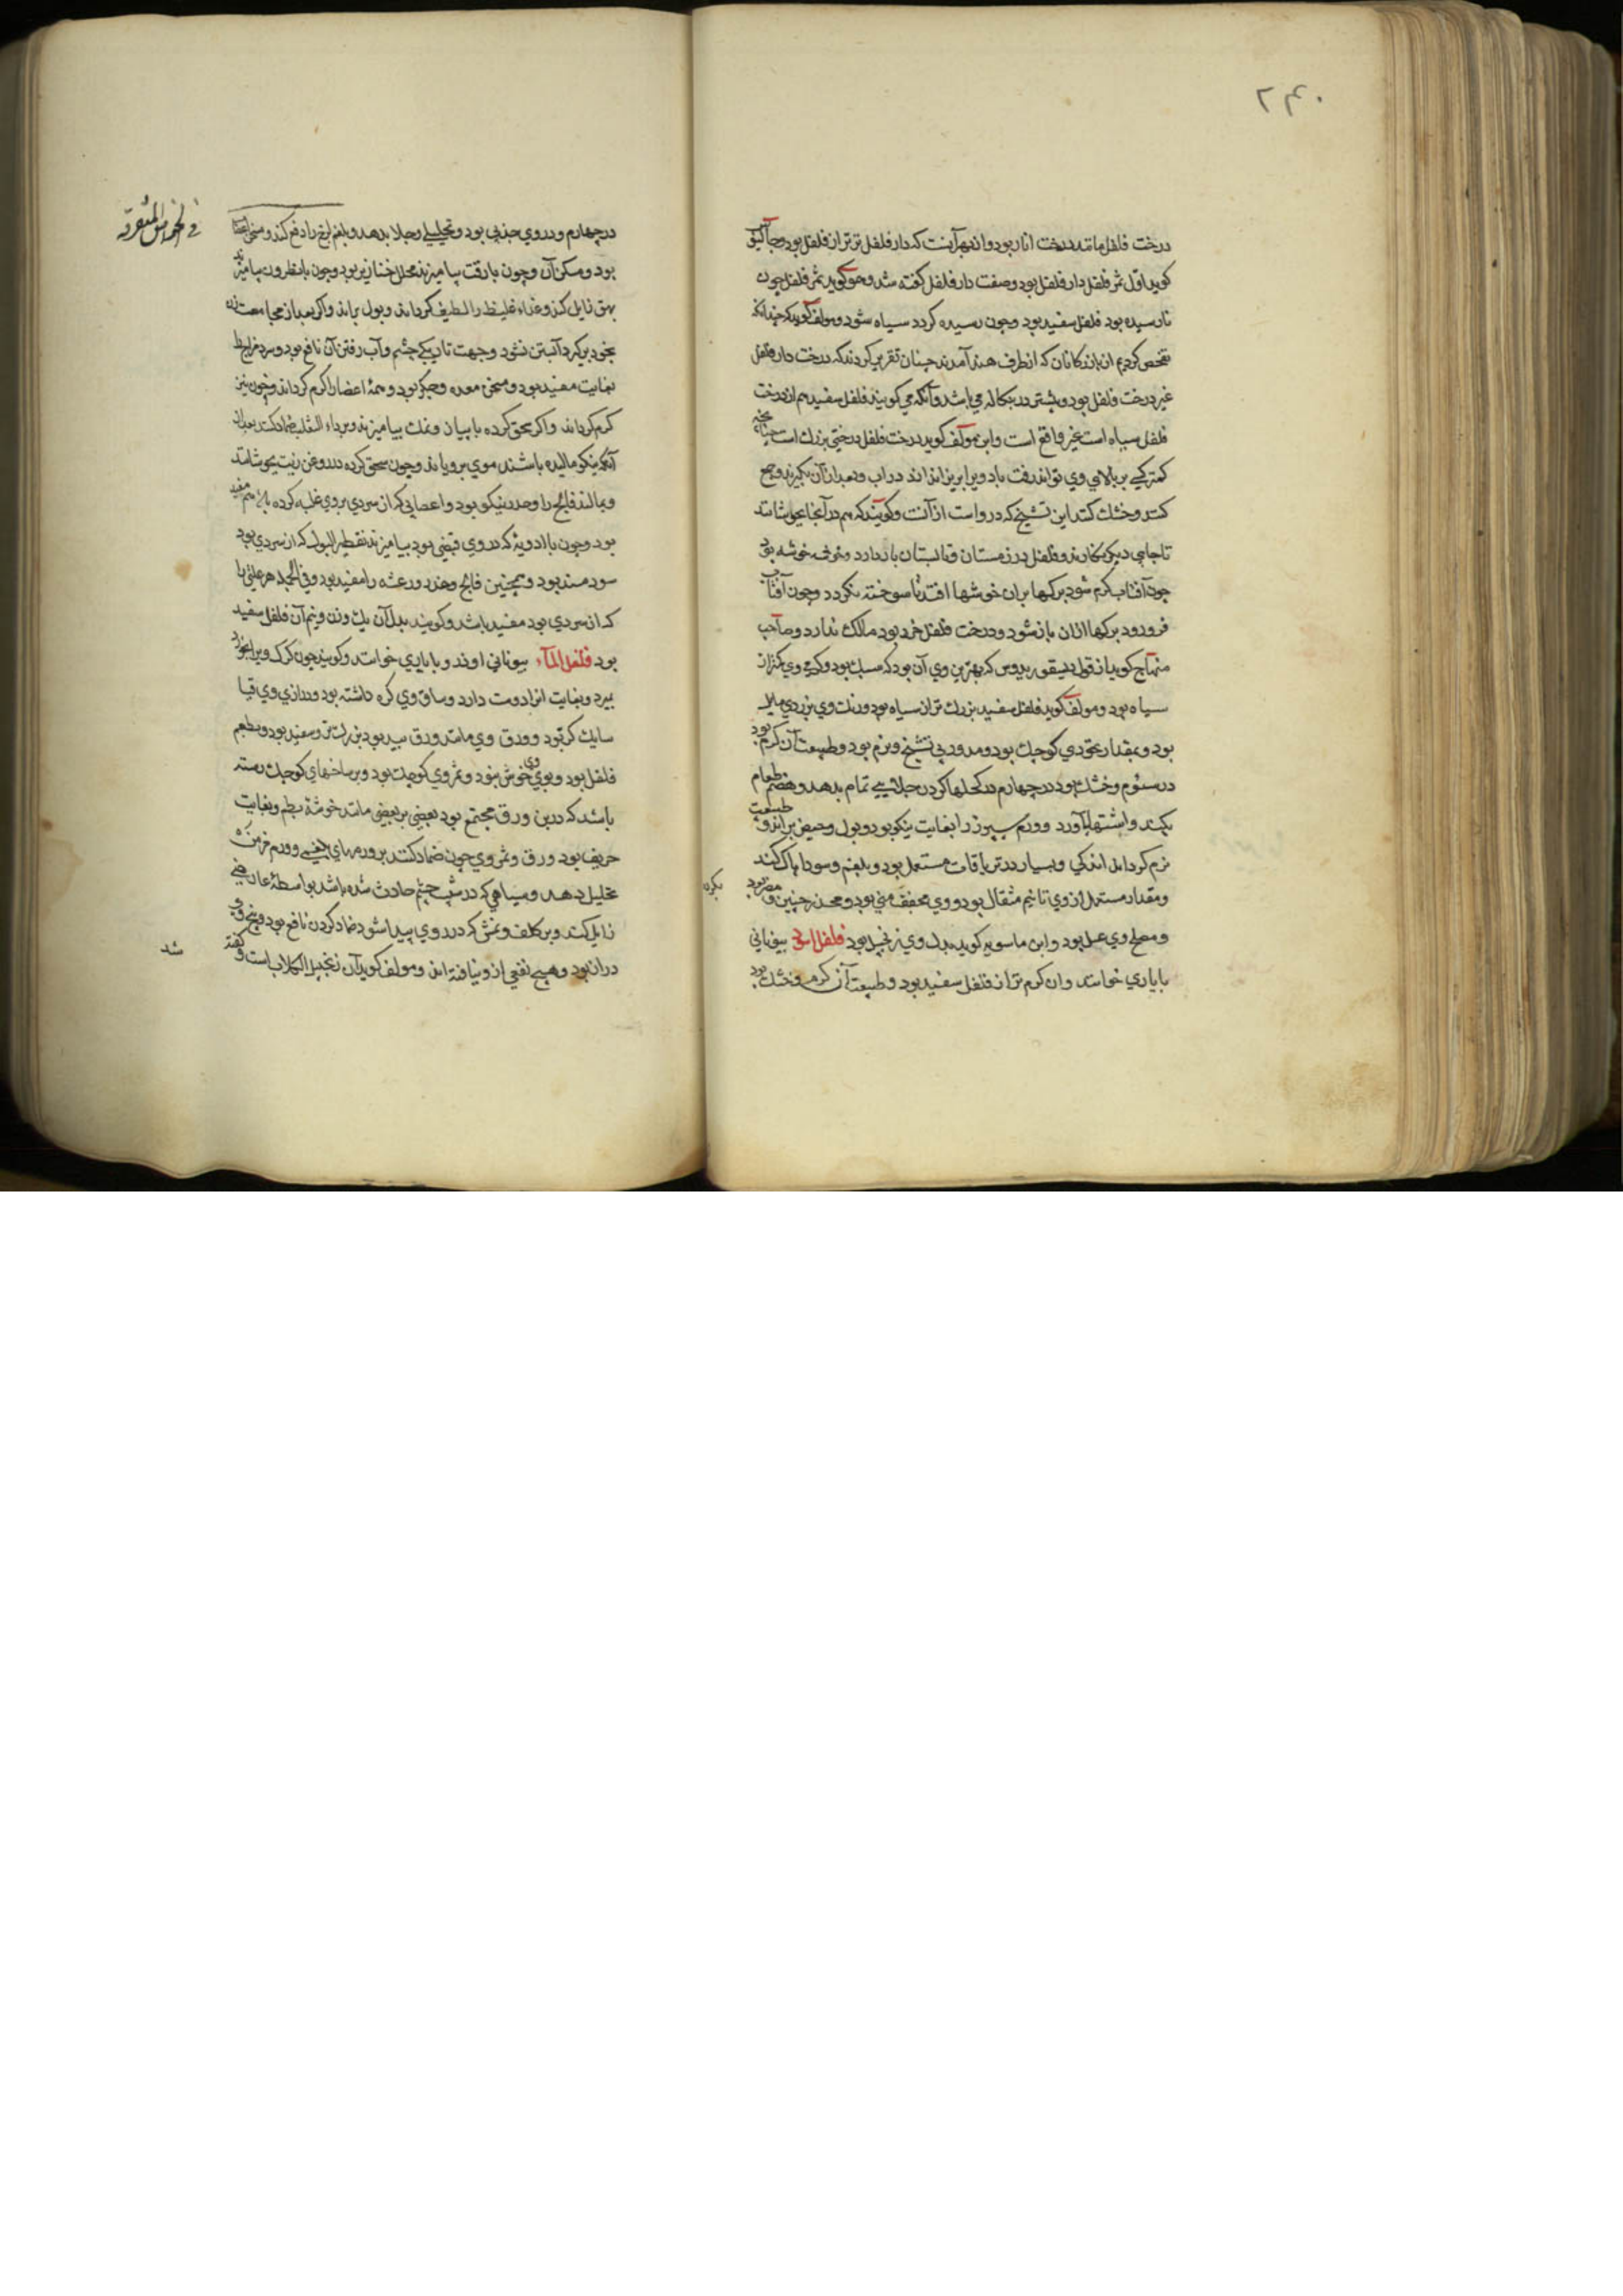 ۲۴۰
درخت فلفل مانند درخت انار بود و از بهر آنست که دارفلفل تر تر از فلفل بود و جالینوس
کوید اول ثمر فلفل دارفلفل بود و صفت دارفلفل کفته شد و هم کوید ثمر فلفل چون
نارسیده بود فلفل سفید بود و چون رسیده کردد سیاه شود و مولف کوید که چندانکه
تفحص کردیم از بازرکانان که از طرف هند آمدند چنان تقریر کردند که درخت دارفلفل
غیر درخت فلفل بود و بیشتر در بنکاله می باشد و آنکه می کویند فلفل سفید هم از درخت
فلفل سیاه است غیر واقع است و ابن مولف کوید درخت فلفل درختی بزرك است
کمتر کسی بر بالای وی تواند رفت باد ویرا بریزاند در اب و بعد از آن بکیرند و جمع
کنند و خشك کنند این تشنج که در واست از آنست و کویند که هم در آنجا بجوشانند
تا جایی دیکر نکارند و فلفل در زمستان و تابستان بار دارد و خوشه بود
چون آفتاب کرم شود برکها بران خوشها افتد تا سوخته نکردد و چون آفتاب
فرو رود برکها ازان باز شود و درخت فلفل خرد بود مالك ندارد و صاحب
منهاج کوید از قول دیسقوریدوس که بهترین وی آن بود که سبك بود و کرمی وی کمتر از
سیاه بود و مولف کوید فلفل سفید بزرك تر از سیاه بود و رنك وی بزردی مایل
بود و بمقدار نخودی کوچك بود و مدور بی تشنج و نرم بود و طبیعت آن کرم بود
در سئوم و خشك بود در چهارم در کحلها کردن جلایی تمام بدهد و هضم طعام
بکند و اشتها آورد و ورم سپرز را بغایت نیکو بود و بول و حیض براند و طبیعت
نرم کرداند اندکی و بسیار در تریاقات مستعمل بود و بلغم و سودا پاک کند
و مقدار مستعمل از وی تا نیم مثقال بود و وی مجفف منی بود و مخدر جنین و مضر بود
بکرده
و مصلح وی عسل بود و ابن ماسویه کوید بدل وی زنجبیل بود فلفل اسود بیونانی
باباری خوانند و ان کرم تر از فلفل سفید بود و طبیعت آن کرم و خشك بود
فی الخواص المتفرقه
در چهارم و در وی جذبی بود و تحلیلی و جلا بدهد و بلغم لزج را دفع کند و مسخن اعضا
بود و مسکن آن و چون با زفت بیامیزند محلل خنازیر بود و چون با نطرون بیامیزند
بهق زایل کند و غذاء غلیظ را لطیف کرداند و بول براند و اکر بعد از مجامعت زن
بخود برکیرد آبستن نشود و جهت تاریکی چشم و آب رفتن آن نافع بود و سرد مزاج را
بغایت مفید بود و مسخن معده و جکر بود و همهٔ اعضا را کرم کرداند و خون نیز
کرم کرداند و اکر سحق کرده با پیاز و نمك بیامیزند و بر داء الثعلب ضماد کنند بعد از
آنکه نیکو مالیده باشند موی برویاند و چون سحق کرده در روغن زیت بجوشانند
و بمالند فالج را و خدر نیکو بود و اعصابی که از سردی بروی غلبه کرده باشد هم مفید
بود و چون با ادویهٔ که در وی قبضی بود بیامیزند تقطیر البول که از سردی بود
سودمند بود و همچنین فالج و خدر و رعشه را مفید بود و فی الجمله هر علتی را
که از سردی بود مفید باشد و کویند بدل آن یك وزن و نیم آن فلفل سفید
بود فلفل الماء بیونانی اوندو باباری خوانند و کویند چون کرک ویرا بخورد
بمیرد و بغایت انرا دوست دارد و ساق وی کره داشته بود و درازی وی قیا
سایك کز بود و ورق وی مانند ورق بید بود بزرك تر و سفید بود و بطعم
فلفل بود و بوی وی خوش نبود و ثمر وی کوچك بود و بر شاخهای کوچك رسته
باشد که در بن ورق مجتمع بود بعضی بر بعضی مانند خوشهٔ بطم و بغایت
حریف بود ورق و ثمر وی چون ضماد کنند بر ورمهای بلغمی و ورم مزمن
تحلیل دهد و سیاهی که در شیب چشم حادث شده باشد بواسطهٔ عارضی
زایل کند و بر کلف و نمش که در روی پیدا شود ضماد کردن نافع بود و بیخ وی
دراز بود و هیچ نفعی از و نیافته اند و مولف کوید آن زنجبیل الکلاب است و کفته
شد